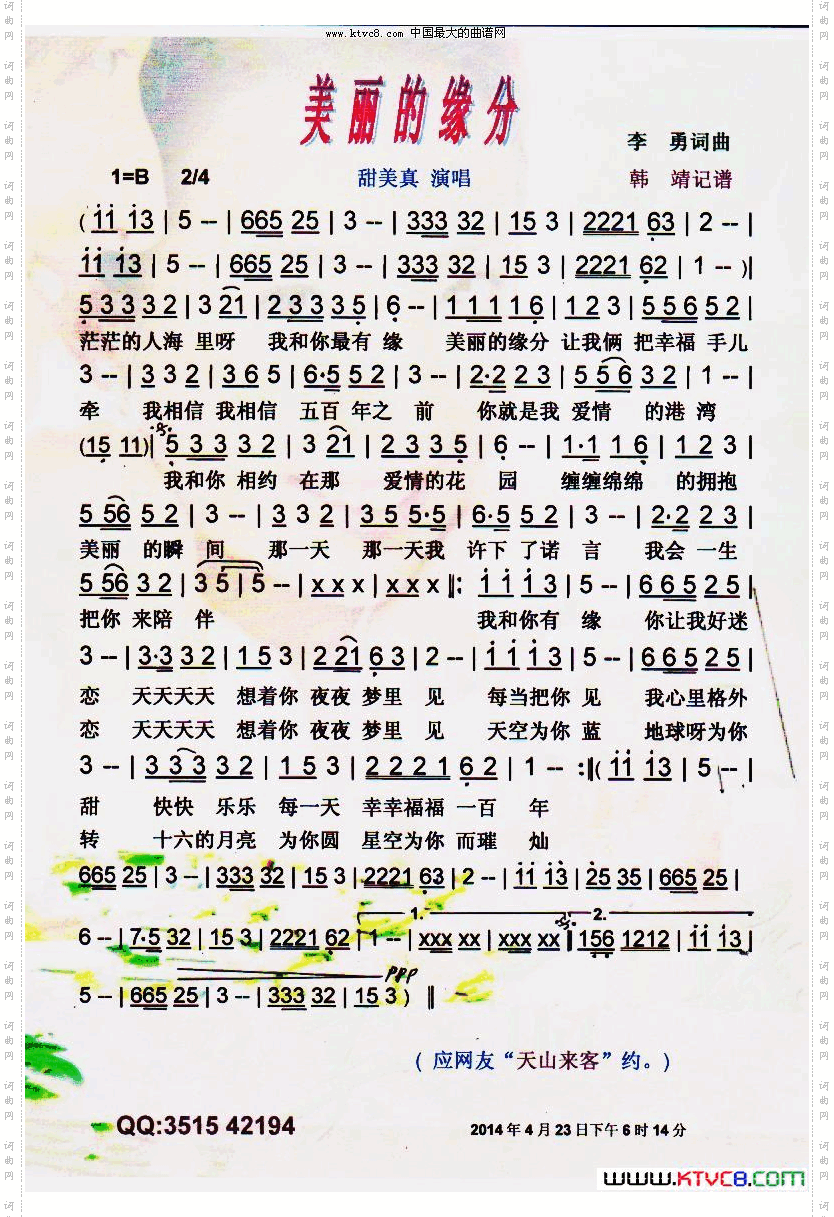 www.ktvc8.com 中国最大的曲谱网
美丽的缘分
李 勇词曲
1=B 2/4 甜美真 演唱 韩 靖记谱
(i i i 3 | 5 -- | 665 25 | 3 -- | 333 32 | 15 3 | 2221 63 | 2 -- |
i i i 3 | 5 -- | 665 25 | 3 -- | 333 32 | 15 3 | 2221 62 | 1 -- )|
5 3 3 3 3 2 | 3 21 | 2 3 3 3 5 | 6 -- | 1 1 1 1 6 | 1 2 3 | 5 5 6 5 2 |
茫茫的人海 里呀 我和你最有 缘 美丽的缘分 让我俩 把幸福 手儿
3 -- | 3 3 2 | 3 6 5 | 6·5 5 2 | 3 -- | 2·2 2 3 | 5 56 3 2 | 1 -- |
牵 我相信 我相信 五百 年之 前 你就是我 爱情 的港 湾
(15 11) | 5 3 3 3 2 | 3 21 | 2 3 3 5 | 6 -- | 1·1 1 6 | 1 2 3 |
我和你 相约 在那 爱情的花 园 缠缠绵绵 的拥抱
5 56 5 2 | 3 -- | 3 3 2 | 3 5 5·5 | 6·5 5 2 | 3 -- | 2·2 2 3 |
美丽 的瞬 间 那一天 那一天我 许下 了诺 言 我会 一生
5 56 3 2 | 3 5 | 5 -- | x x x | x x x ‖: i i i 3 | 5 -- | 6 6 5 2 5 |
把你 来陪 伴 我和你有 缘 你让我好迷
3 -- | 3·3 3 2 | 1 5 3 | 2 21 6 3 | 2 -- | i i i 3 | 5 -- | 6 6 5 2 5 |
恋 天天天天 想着你 夜夜 梦里 见 每当把你 见 我心里格外
恋 天天天天 想着你 夜夜 梦里 见 天空为你 蓝 地球呀为你
3 -- | 3 3 3 3 2 | 1 5 3 | 2 2 2 1 6 2 | 1 -- :‖( i i i 3 | 5 -- |
甜 快快 乐乐 每一天 幸幸福福 一百 年
转 十六的月亮 为你圆 星空为你 而璀 灿
665 25 | 3 -- | 333 32 | 15 3 | 2221 63 | 2 -- | i i i 3 | 25 35 | 665 25 |
1. 2.
6 -- | 7·5 32 | 15 3 | 2221 62 | 1 -- | xxx xx | xxx xx ‖ 156 1212 | i i i 3 |
ppp
5 -- | 665 25 | 3 -- | 333 32 | 15 3 ) ‖
( 应网友“天山来客”约。)
QQ:3515 42194
2014 年 4 月 23 日下午 6 时 14 分
www.KTVC8.com